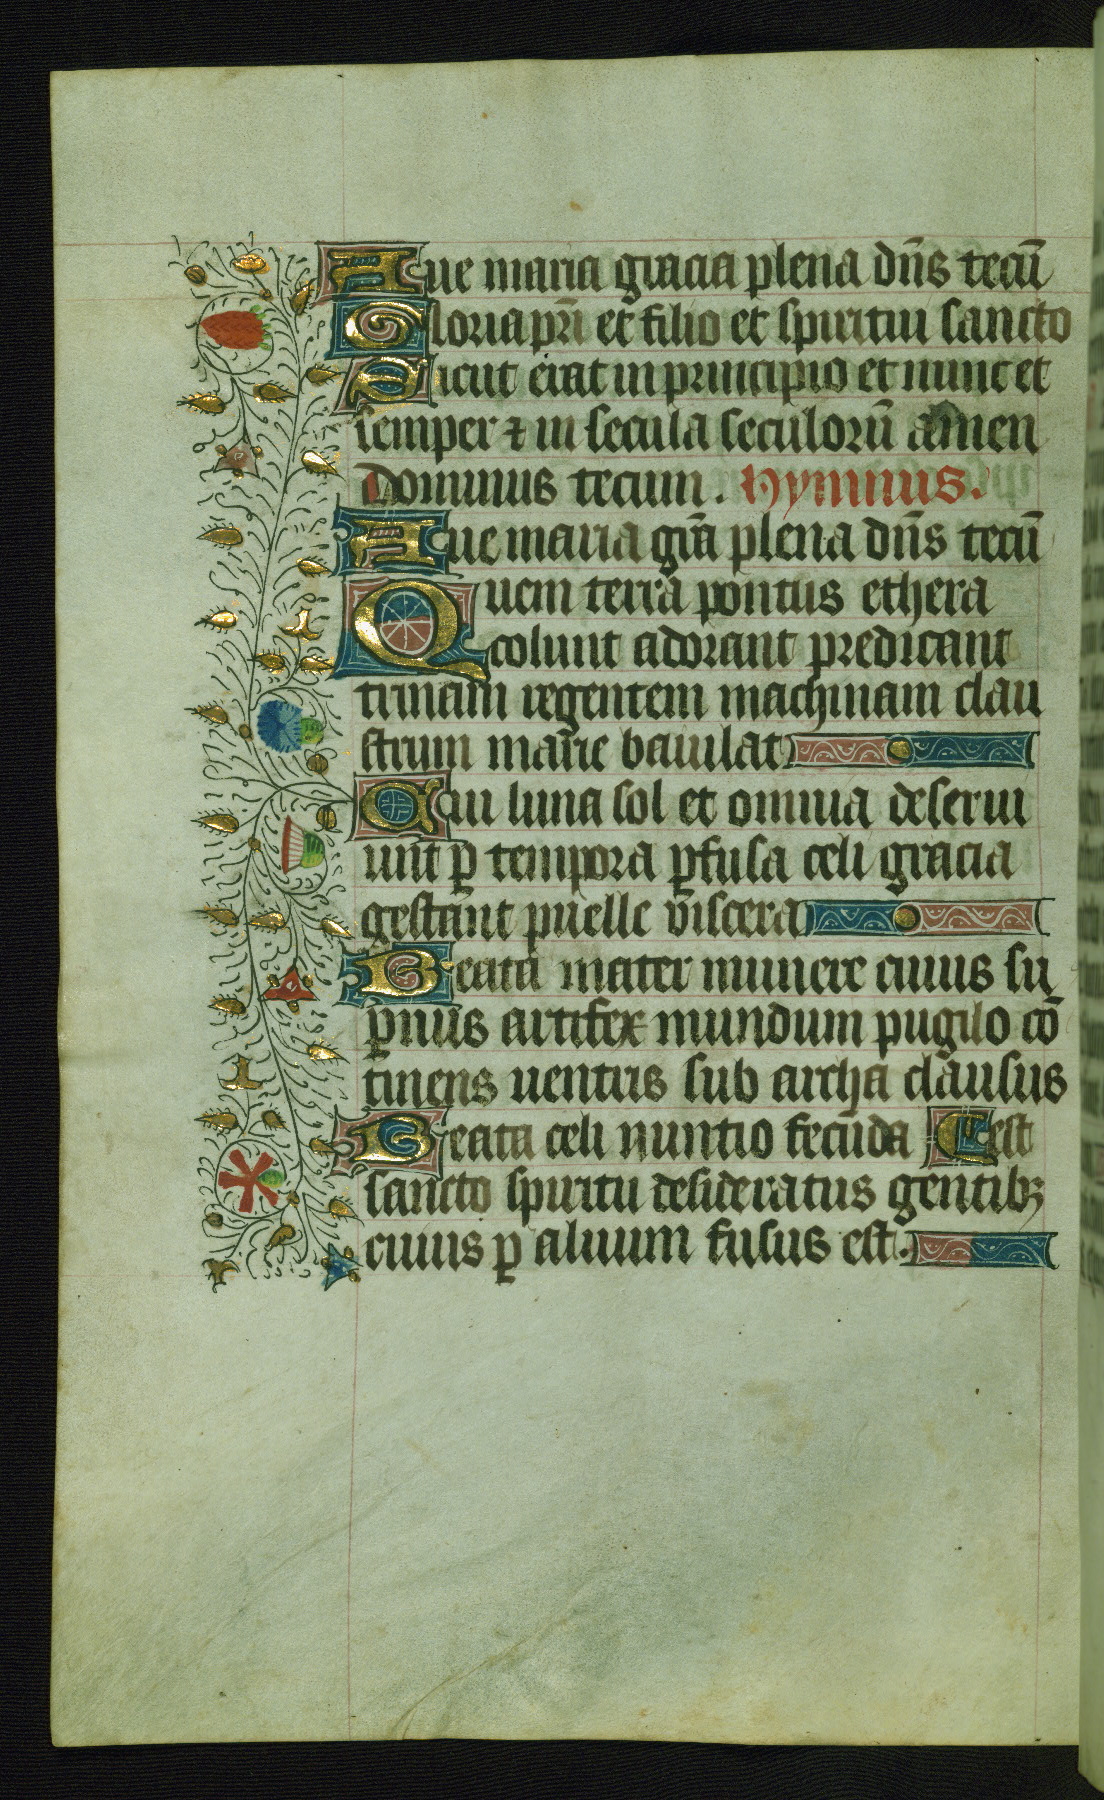 Aue maria gracia plena dñs tecū
Gloria pr̄i et filio et spiritui sancto
Sicut erat in principio et nunc et
semper ⁊ in secula seculorū amen
Dominus tecum. Hymnus.
Aue maria gr̄a plena dñs tecū
Quem terra pontus ethera
colunt adorant predicant
trinam regentem machinam clau
strum marie baiulat
Cui luna sol et omnia deserui
unt ꝑ tempora ꝑfusa celi gracia
gestant puelle viscera
Beata mater munere cuius su
ꝑnus artifex mundum pugilo cō
tinens uentris sub archa clausus
Beata celi nuntio fecunda est
sancto spiritu desideratus gentibꝫ
cuius ꝑ aluum fusus est.